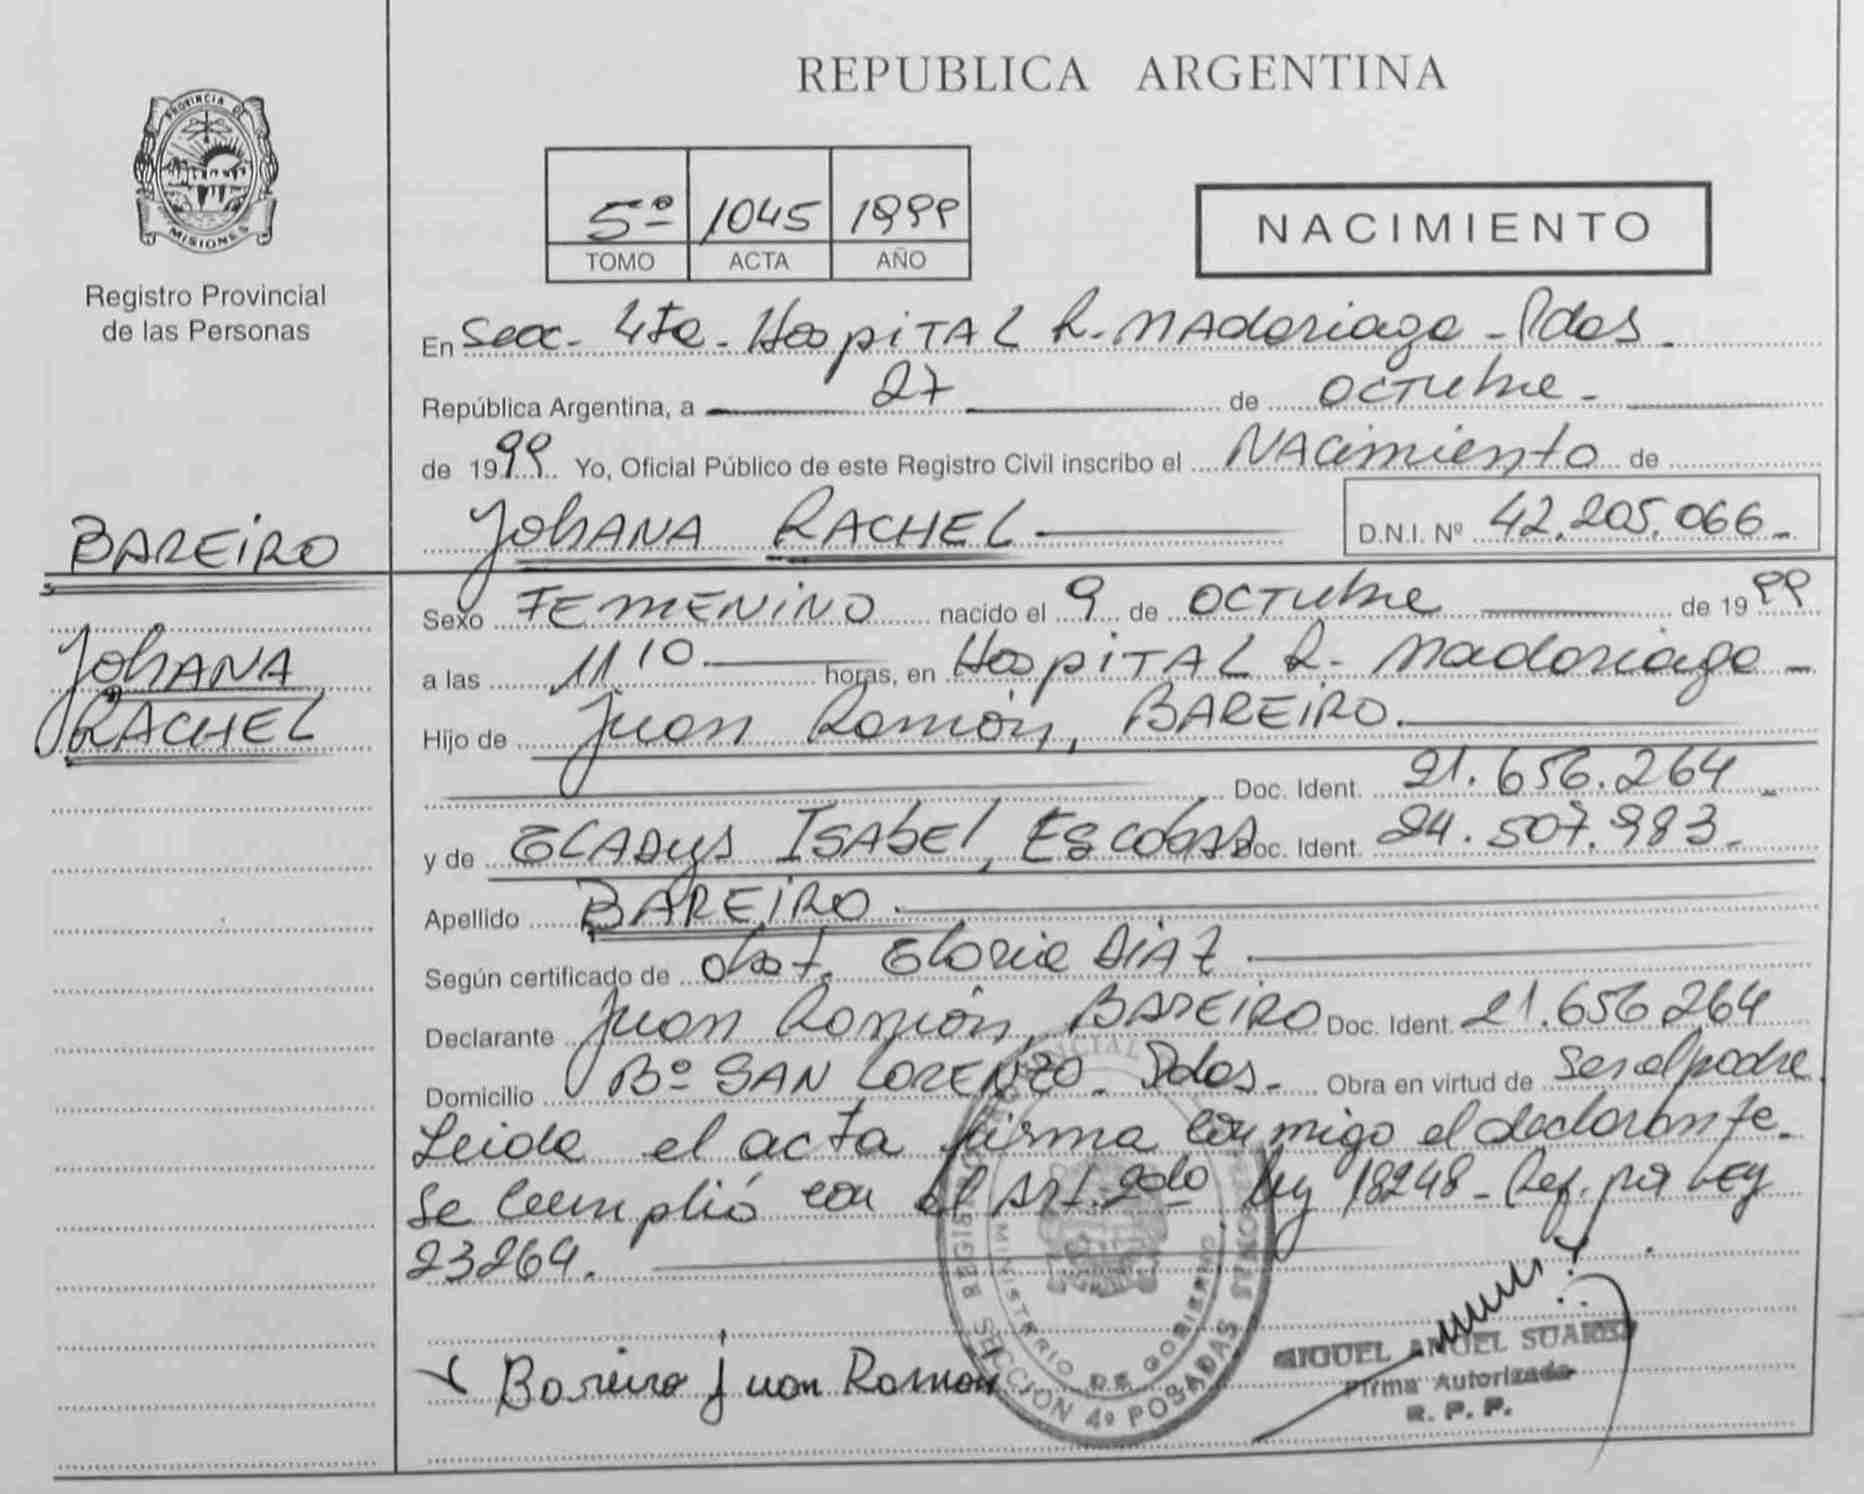 REPUBLICA ARGENTINA
PROVINCIA DE MISIONES
Registro Provincial
de las Personas
5º 1045 1999
TOMO ACTA AÑO
NACIMIENTO
En Secc. 4ta. Hospital R. Madariaga - Pdas.
República Argentina, a 27 de octubre.
de 1999 Yo, Oficial Público de este Registro Civil inscribo el NAcimiento de
JohANA RACHEL D.N.I. Nº 42.205.066.
BAREIRO
JohANA
RACHEL
Sexo FEMENINO nacido el 9 de octubre de 1999
a las 11 10 horas, en Hospital R. Madariaga
Hijo de Juan Ramón, BAREIRO.
Doc. Ident. 21.656.264
y de GLADys ISAbEl, EscobAR Doc. Ident. 24.507.983.
Apellido BAREIRO.
Según certificado de obst. Gloria DIAZ.
Declarante Juan Ramón, BAREIRO Doc. Ident. 21.656.264
Domicilio Bº SAN LORENZO - Pdas. Obra en virtud de ser el padre
Leida el acta firma conmigo el declarante.
Se cumplió con el Art. 2do ley 18248 - Ref. por Ley
23264.
Bareiro juan Ramon
MINISTERIO DE GOBIERNO
SECCION 4º POSADAS
MIGUEL ANGEL SUAREZ
Firma Autorizada
R. P. P.